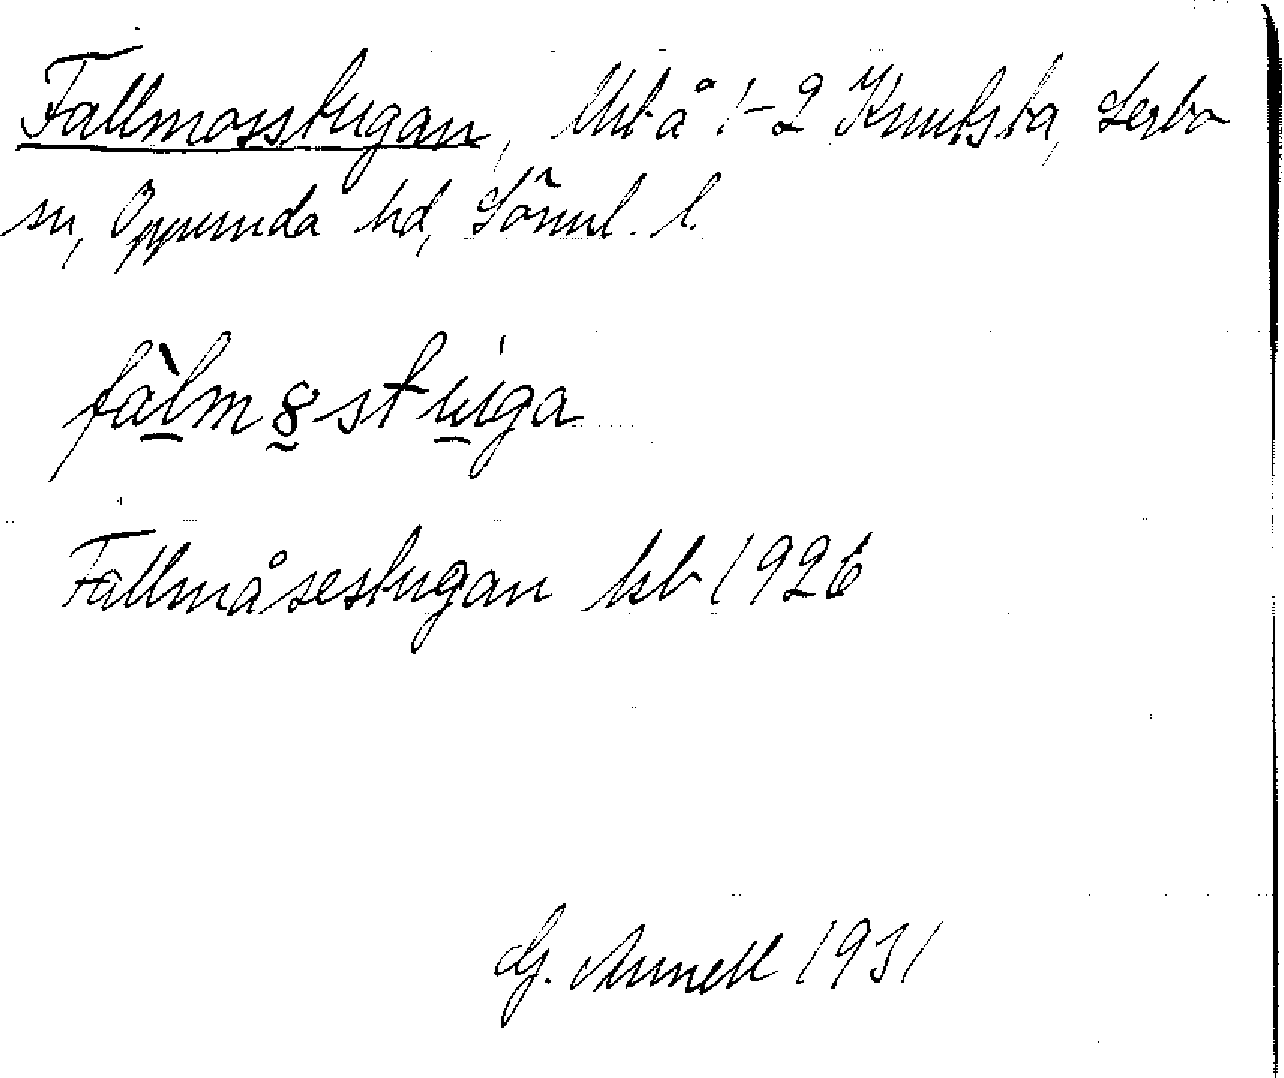 Fallmosstugan, Utbå 1-2 Knutsta, Lerbo
sn, Oppunda hd, Söml. l.
fàlmȣstuga
Fallmåsestugan kb 1926
G. Annell 1931